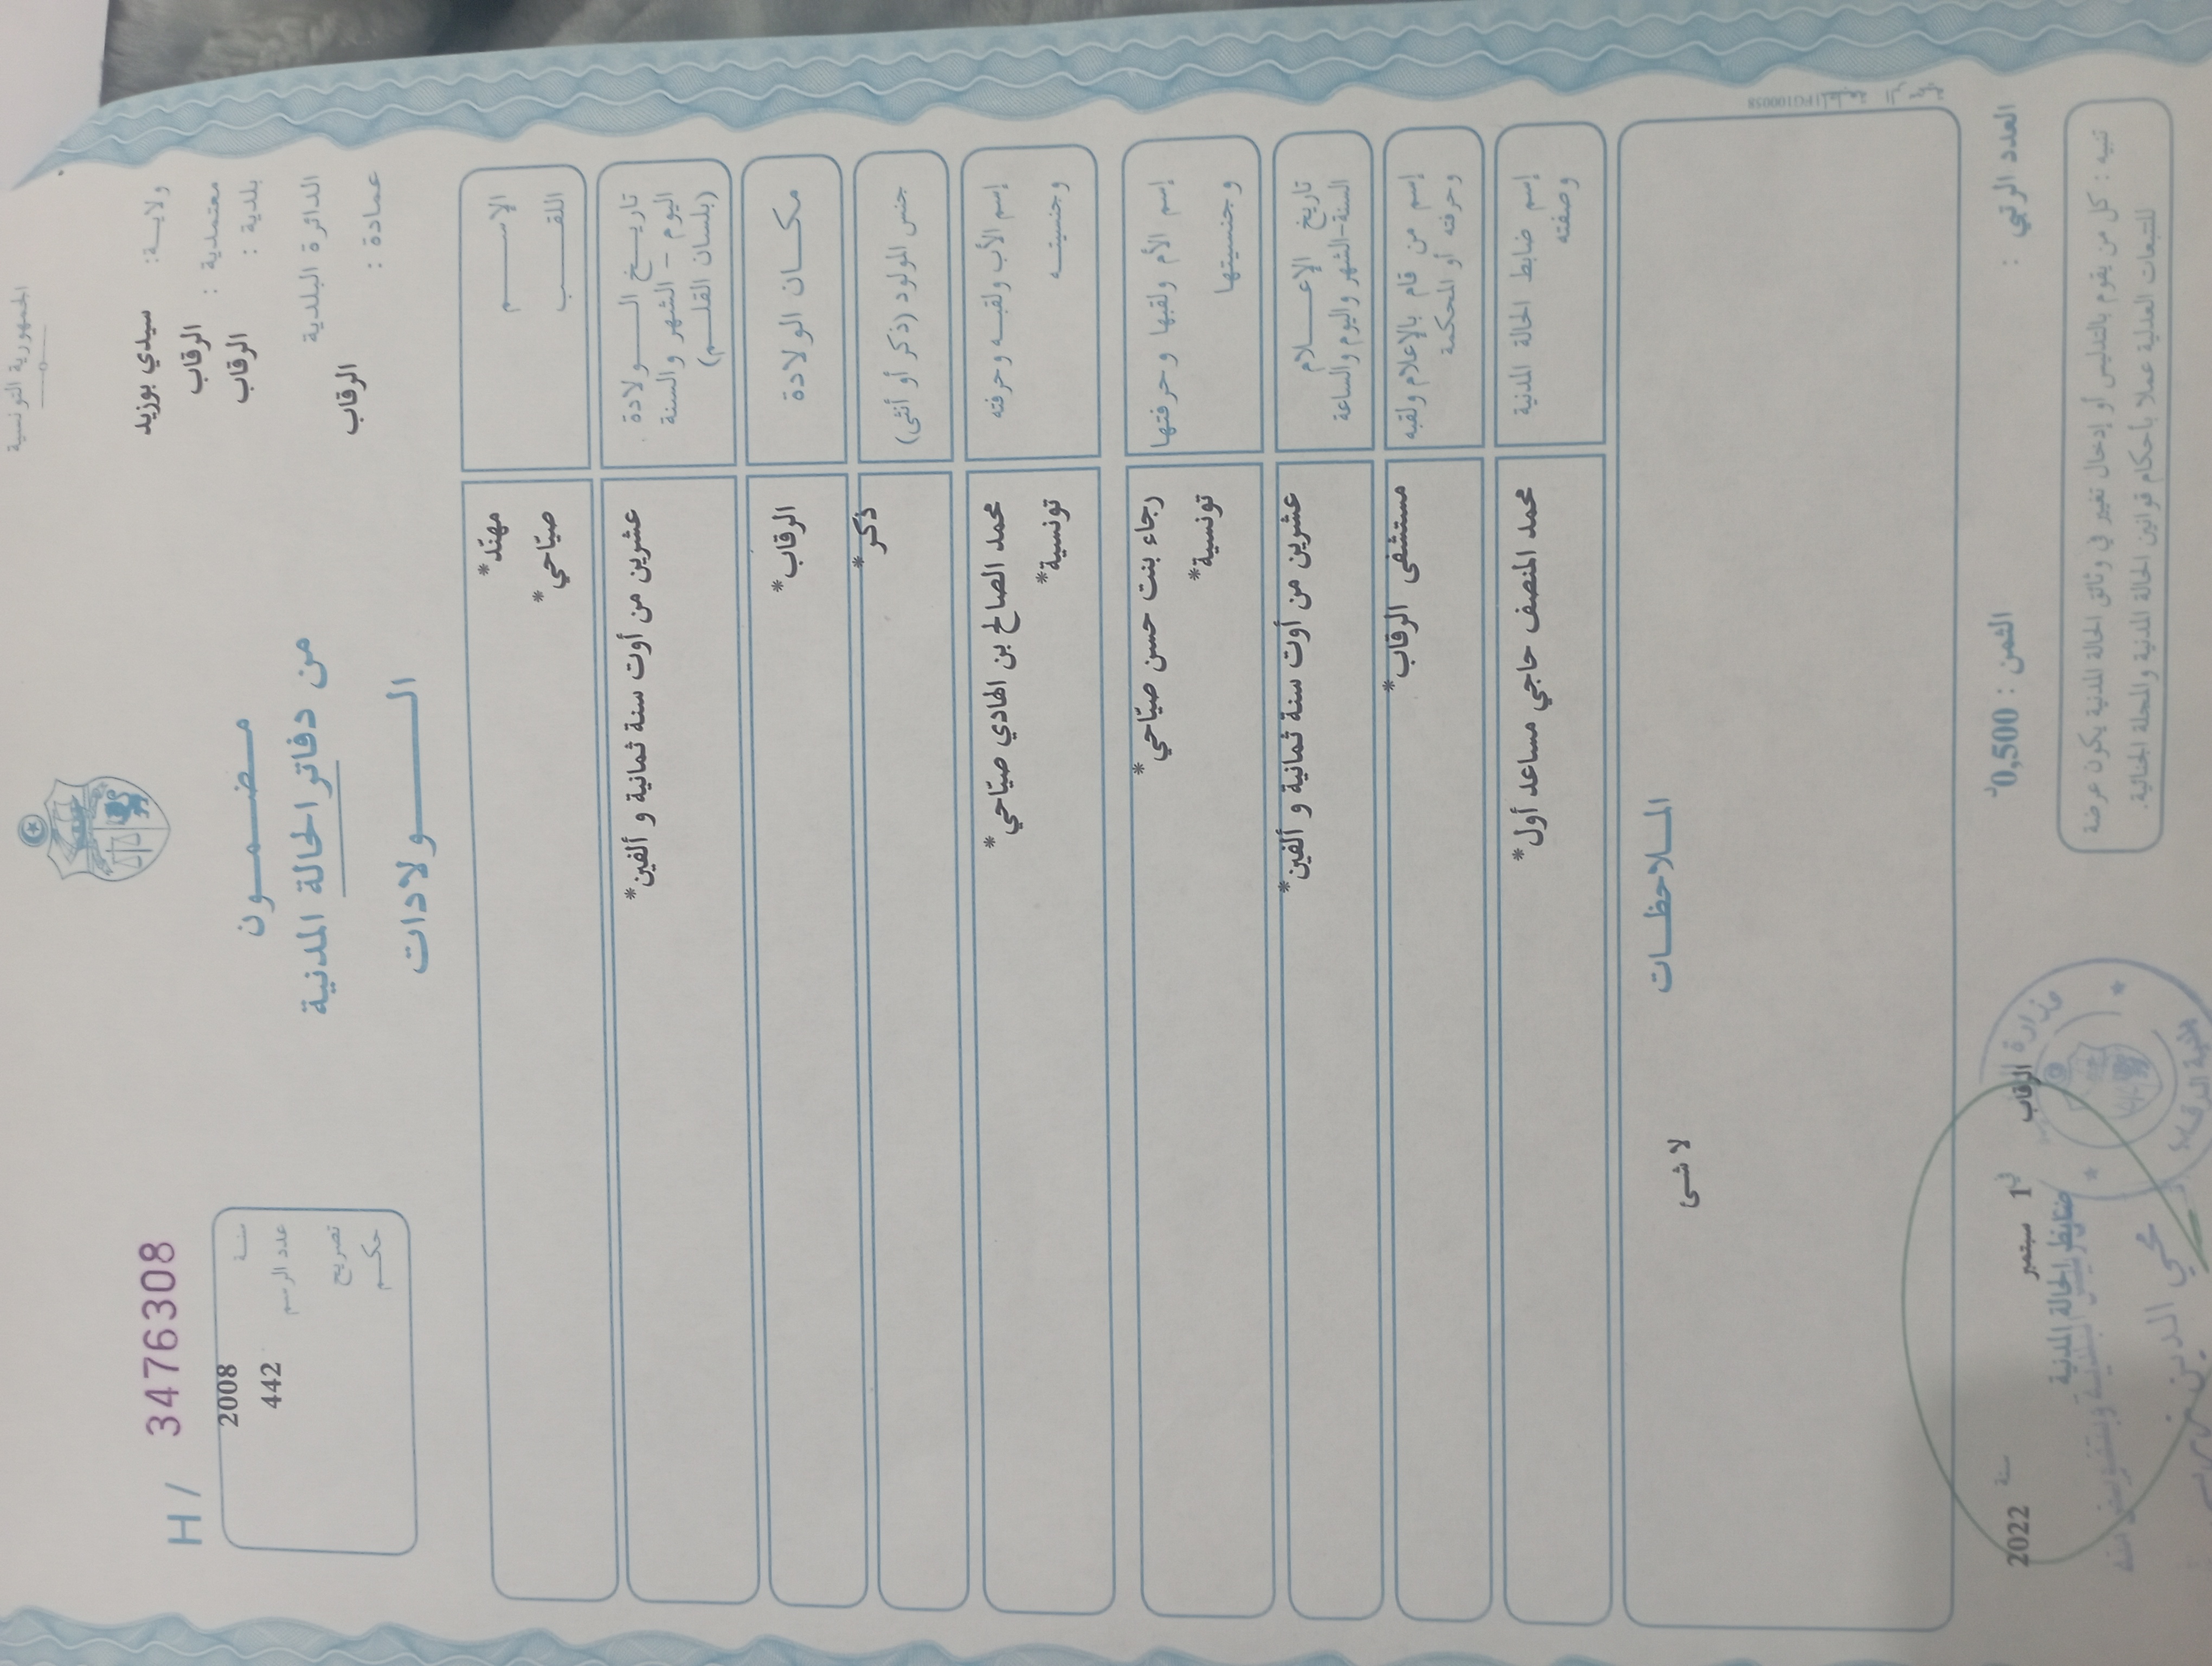 الجمهورية التونسية
ولايـــة: سيدي بوزيد
معتمدية : الرقاب
بلدية : الرقاب
الدائرة البلدية
عمادة : الرقاب
H / 3476308
سنـــة 2008
عدد الرسم 442
تصريح
حكـــم
مـضـمــون
من دفاتر الحالة المدنية
الــــولادات
الإســــم مهنّد*
اللقــــب صيّاحي*
تاريـــخ الــــولادة عشرين من أوت سنة ثمانية و ألفين*
اليوم – الشهر والسنة
(بلسان القلـــم)
مكـــان الولادة الرقاب*
جنس المولود (ذكر أو أنثى) ذكر*
إسم الأب ولقبـه وحرفته محمد الصالح بن الهادي صيّاحي*
وجنسيتـــه تونسية*
إسم الأم ولقبها وحرفتها رجاء بنت حسن صيّاحي*
وجنسيتها تونسية*
تاريخ الإعـــلام عشرين من أوت سنة ثمانية و ألفين*
السنة-الشهر واليوم والساعة
إسم من قام بالإعلام ولقبه مستشفى الرقاب*
وحرفته أو المحكمة
إسم ضابط الحالة المدنية محمد المنصف حاجي مساعد أول*
وصفته
المـلاحظـات
لا شئ
العدد الرتبي :
الثمن : 0,500د
الرقاب في 1 سبتمبر سنة 2022
ضابط الحالة المدنية
محي الدين
تنبيه : كل من يقوم بالتدليس أو إدخال تغيير في وثائق الحالة المدنية يكون عرضة
للتتبعات العدلية عملا بأحكام قوانين الحالة المدنية والمجلة الجنائية.